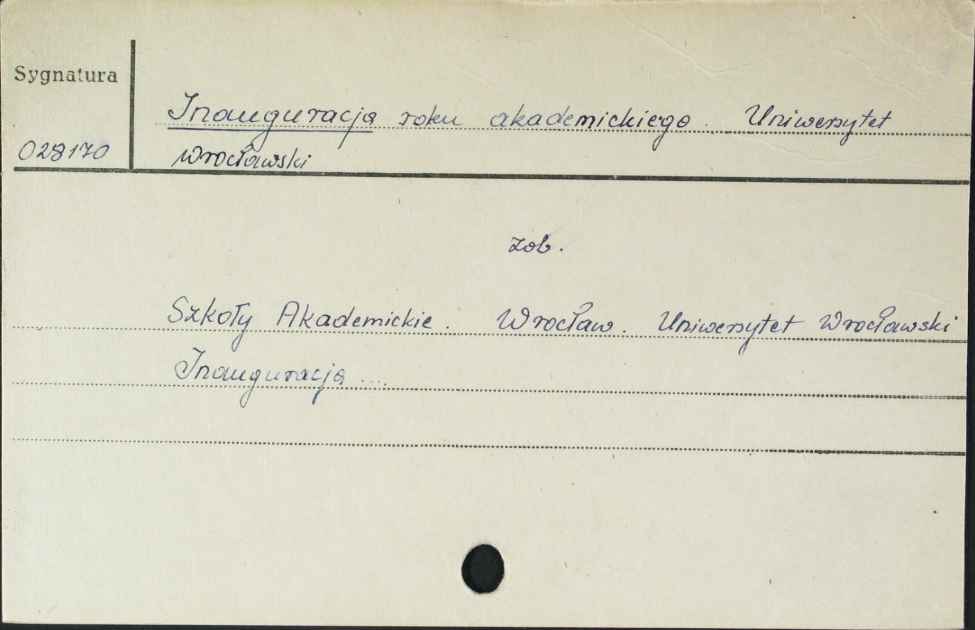 Sygnatura
Inauguracja roku akademickiego. Uniwersytet
028170 Wrocławski
zob.
Szkoły Akademickie. Wrocław. Uniwersytet Wrocławski
Inauguracja ...